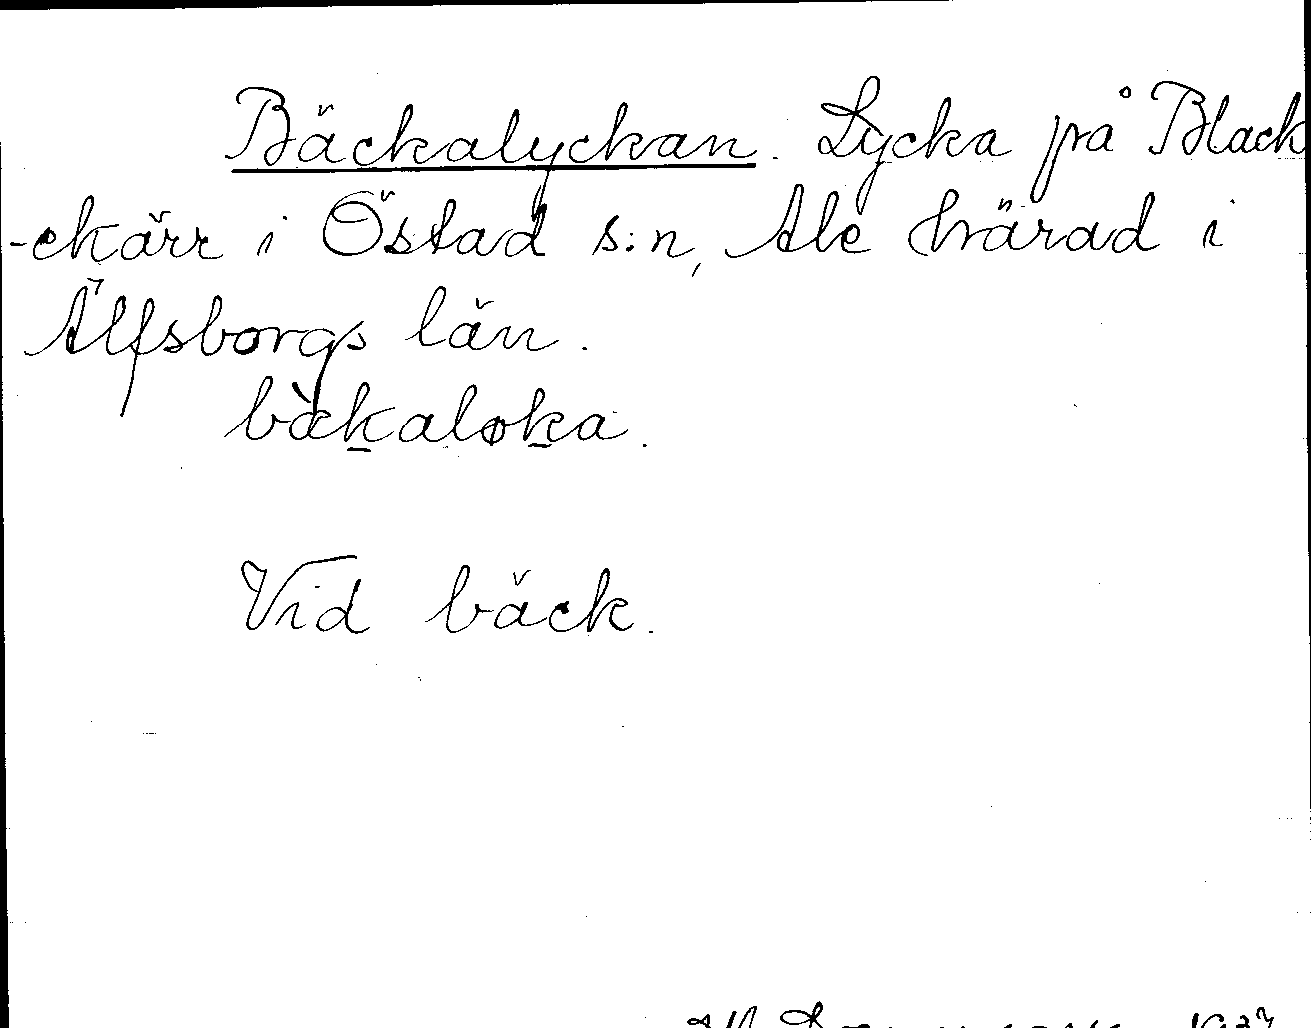 Bäckalyckan. Lycka på Black
-ekärr i Östad s:n, Ale härad i
Älfsborgs län.
bàkaløka.
Vid bäck.